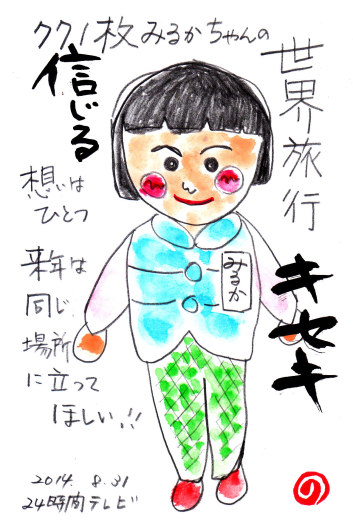 ククノ枚みるかちゃんの
世界旅行
信じる
キセキ
想いは
ひとつ
来年は
同じ
場所
に立って
ほしい!!
みるか
2014. 8.31
24時間テレビ
の